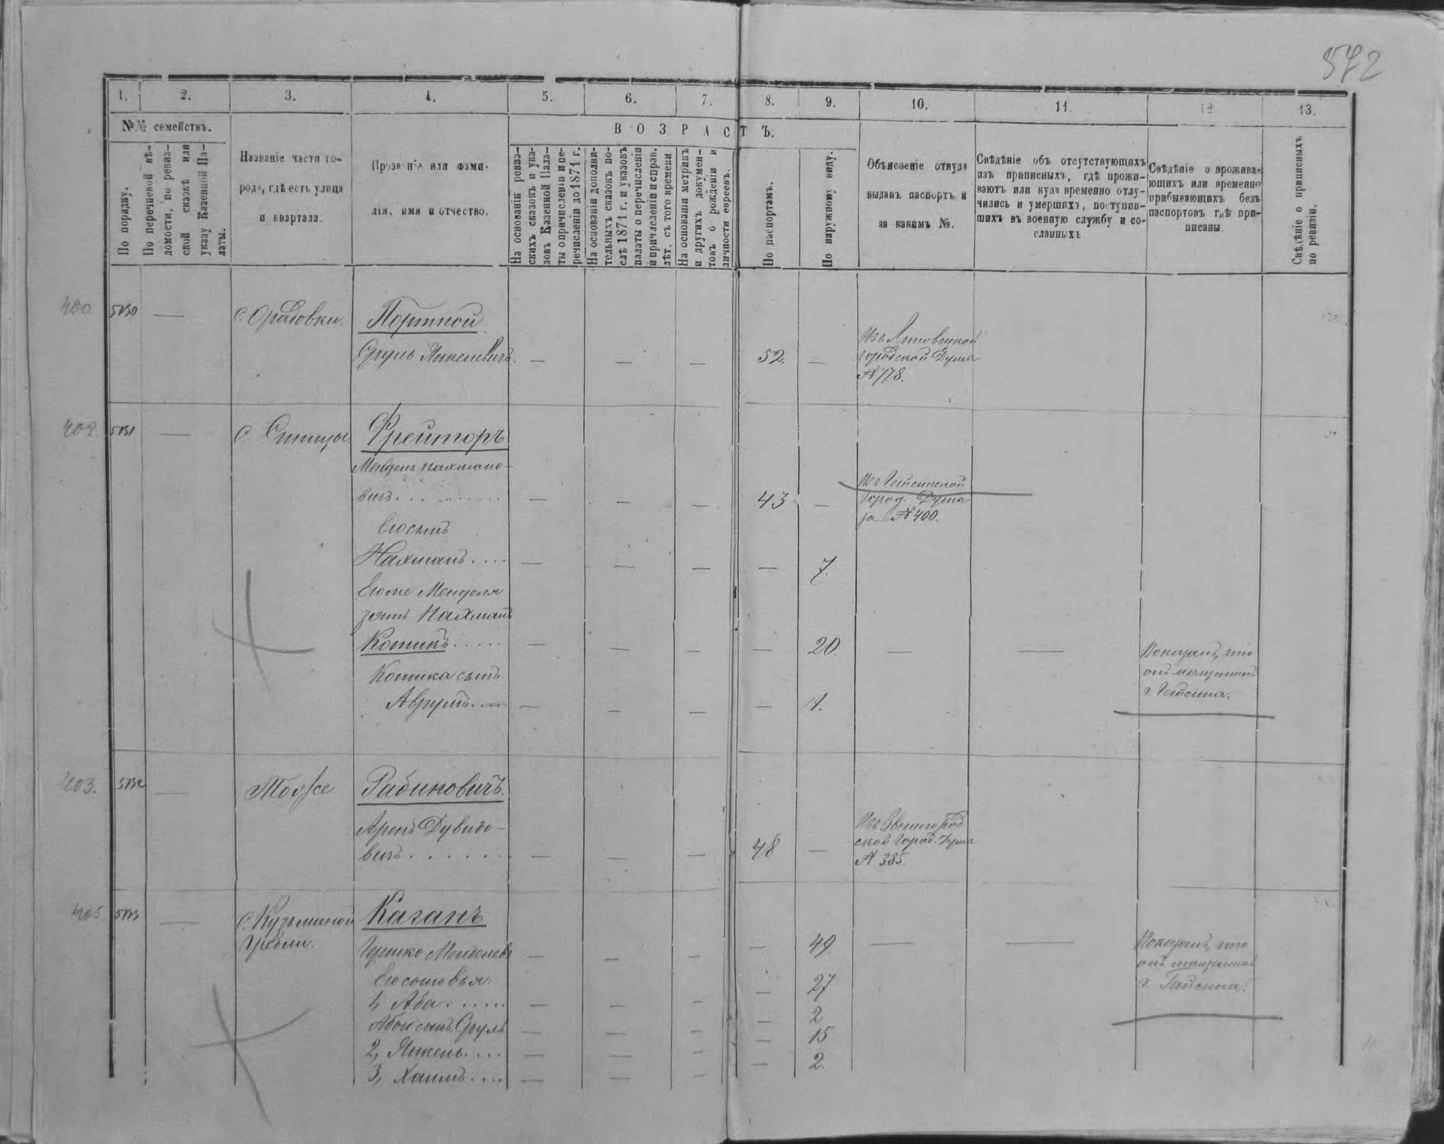 572
1. 2. 3. 4. 5. 6. 7. 8. 9. 10. 11. 12 13.
№№ семействъ.
ВОЗРАСТЪ.
По порядку.
По перечневой вѣ-
домости, по ревиз-
ской сказкѣ или
указу Казенной Па-
латы.
Названіе части го-
рода, гдѣ есть улица
и квартала.
Прозваніе или фами-
лія, имя и отчество.
На основаніи ревиз-
скихъ сказокъ и ука-
зовъ Казенной Пала-
ты о причисленіи и пе-
речисленіи до 1871 г.
На основаніи дополни-
тельныхъ сказокъ по-
слѣ 1871 г. и указовъ
палаты о перечисленіи
и причисленіи и справ.
лѣт. съ того времени
На основаніи метрикъ
и другихъ докумен-
товъ о рожденіи и
личности евреевъ.
По паспортамъ.
По наружному виду.
Объясненіе откуда
выданъ паспортъ и
за какимъ №.
Свѣдѣніе объ отсутствующихъ
изъ приписныхъ, гдѣ прожи-
ваютъ или куда временно отлу-
чились и умершихъ, поступив-
шихъ въ военную службу и со-
сланныхъ
Свѣдѣніе о прожива-
ющихъ или временно
прибывающихъ безъ
паспортовъ гдѣ при-
писаны.
Свѣдѣніе о приписныхъ
по ревизіи.
400. 5130 — с. Оратовки. Портной
Сруль Янкелевичъ. — — — 52. —
Изъ Липовецкой
городской Думы
№ 778.
402. 5131 — с. Синицы Фрейторъ
Мендель Нахмано-
вичъ . . . — — — 43 —
Изъ Гайсинской
Город. Думы
за № 400.
Его сынъ
Нахманъ . . . . — — — — 7.
Его же Менделя
зять Нахманъ
Котикъ . . . . — — — — 20. — —
Показалъ, что
онъ мещанинъ
г. Гайсина.
Котика сынъ
Аврумъ . . . — — — — 1.
403. 5132 — Тоже Рабиновичъ
Аронъ Дувидо-
вичъ . . . . . . — — — 48 —
Изъ Звенигород
ской Город. Думы
№ 385.
405 5133 — с. Кузьминой
Гребли. Каганъ
Гершко Менделевъ — — — — 49. — —
Показалъ, что
онъ мещанинъ
г. Гайсина.
Его сыновья
1, Аба . . . . . — — — — 27
Абы сынъ Сруль — — — — 2
2, Янкель . . . . — — — — 15
3, Хаимъ . . . . — — — — 2.